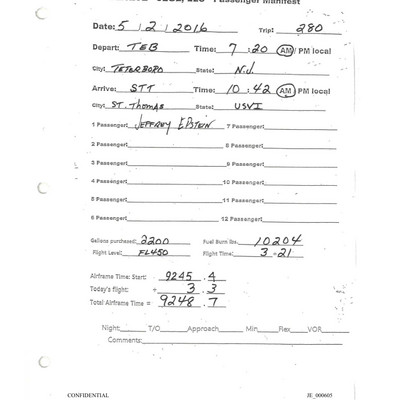 Passenger Manifest
Date: 5 / 2 / 2016 Trip: 280
Depart: TEB Time: 7 : 20 AM / PM local
City: TETERBORO State: N.J.
Arrive: STT Time: 10 : 42 AM / PM local
City: ST. Thomas State: USVI
1 Passenger: JEFFREY EPSTEIN 7 Passenger:
2 Passenger: 8 Passenger:
3 Passenger: 9 Passenger:
4 Passenger: 10 Passenger:
5 Passenger: 11 Passenger:
6 Passenger: 12 Passenger:
Gallons purchased: 2200 Fuel Burn lbs. 10204
Flight Level: FL450 Flight Time: 3 + 21
Airframe Time: Start: 9245 . 4
Today's flight: + 3 . 3
Total Airframe Time = 9248 . 7
Night: T/O Approach Min Flex VOR
Comments:
CONFIDENTIAL JE_000605